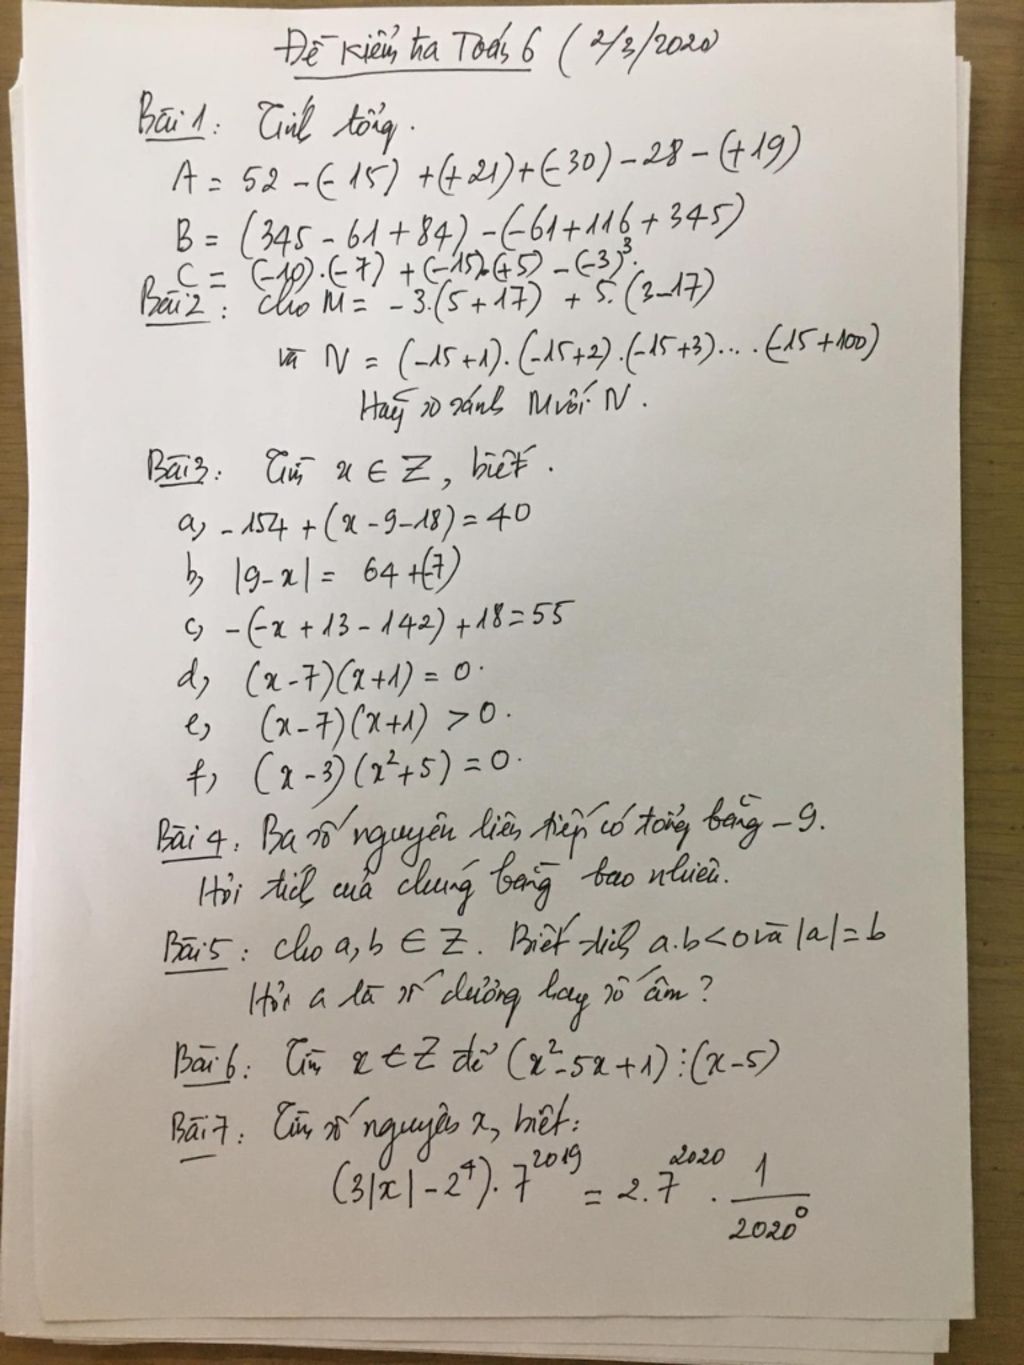 Đề kiểm tra Toán 6 (2/3/2020
Bài 1: Tính tổng.
A = 52 - (-15) + (+21) + (-30) - 28 - (+19)
B = (345 - 61 + 84) - (-61 + 116 + 345)
C = (-10).(-7) + (-15).(+5) - (-3)³.
Bài 2: cho M = - 3.(5 + 17) + 5.(3-17)
và N = (-15+1).(-15+2).(-15+3)....(-15+100)
Hãy so sánh M với N.
Bài 3: Tìm x ∈ Z, biết.
a, - 154 + (x - 9 - 18) = 40
b, |9 - x| = 64 + (-7)
c, - (-x + 13 - 142) + 18 = 55
d, (x - 7)(x + 1) = 0.
e, (x - 7)(x + 1) > 0.
f, (x - 3)(x² + 5) = 0.
Bài 4: Ba số nguyên liên tiếp có tổng bằng -9.
Hỏi tích của chúng bằng bao nhiêu.
Bài 5: cho a, b ∈ Z. Biết tích a.b < 0 và |a| = b
Hỏi a là số dương hay số âm?
Bài 6: Tìm x ∈ Z để (x² - 5x + 1) ⋮ (x - 5)
Bài 7: Tìm số nguyên x, biết:
(3|x| - 2⁴). 7²⁰¹⁹ = 2. 7²⁰²⁰ . 1/2020⁰